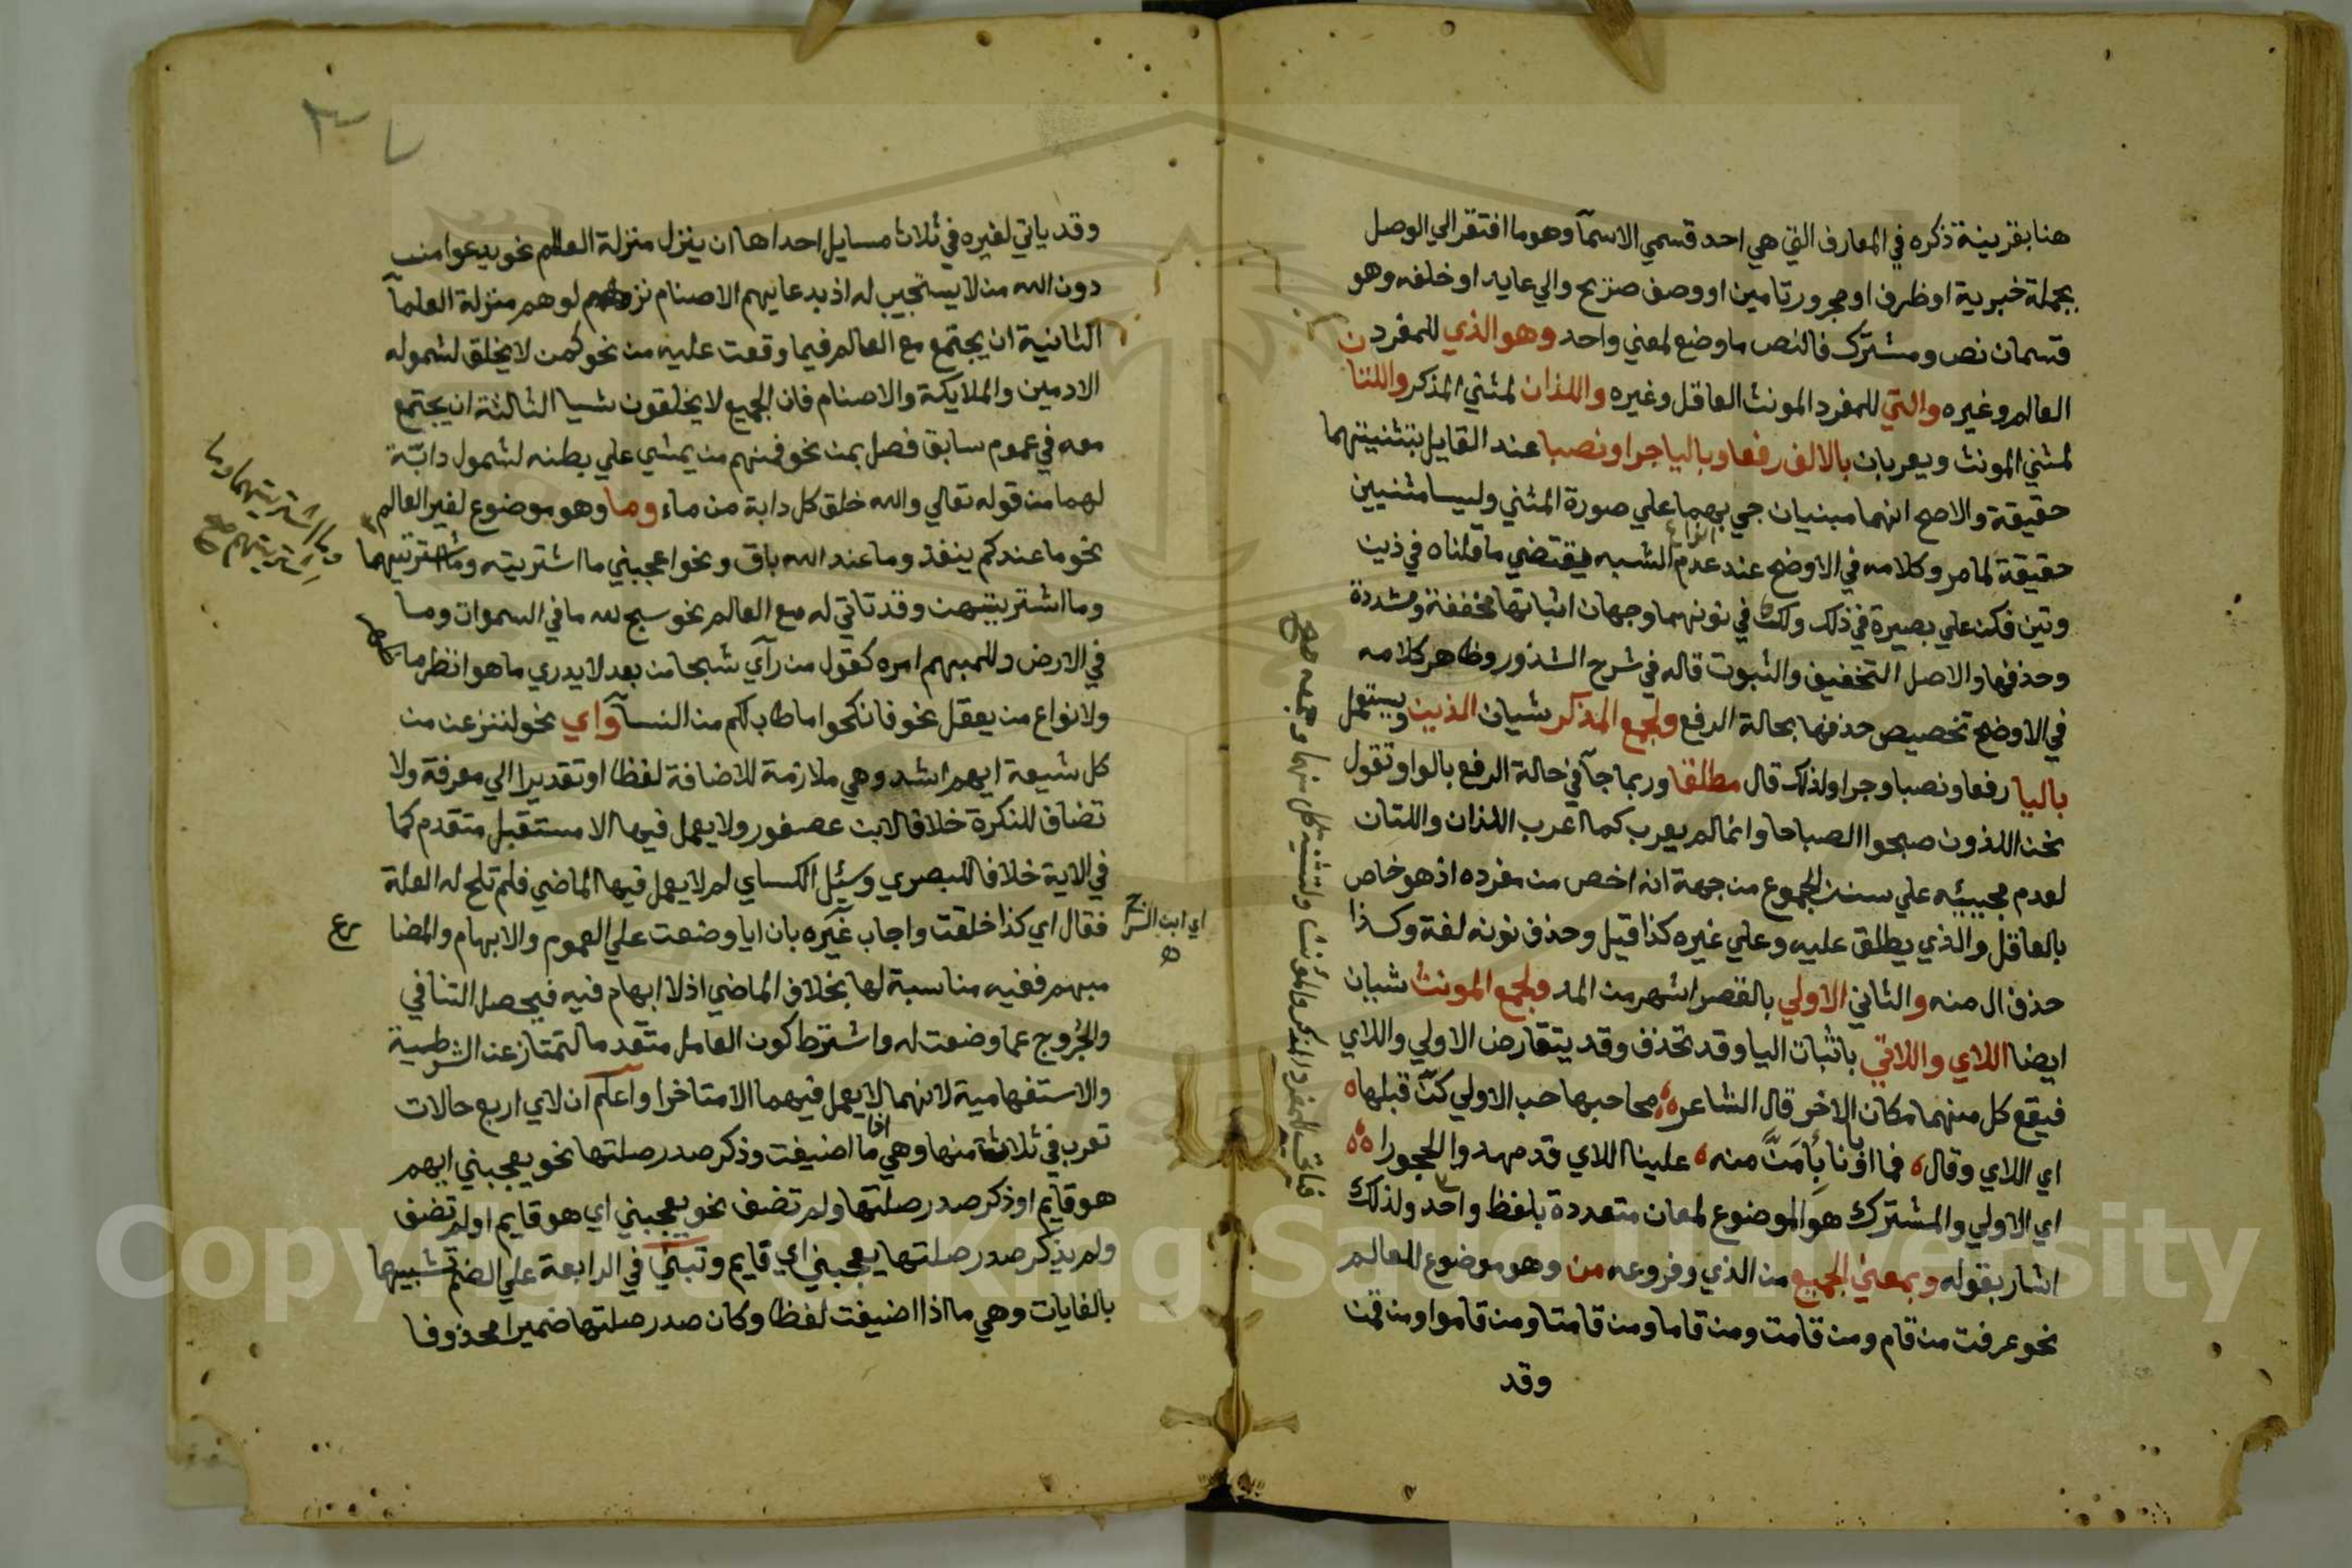 هنا بقرينة ذكره في المعارف التي هي احد قسمي الاسمآ وهو ما افتقر الي الوصل
بجملة خبرية او ظرف او مجرور تامين او وصف صريح والي عايد او خلفه وهو
قسمان نص ومشترك فالنص ما وضع لمعني واحد وهو الذي للمفرد
العالم وغيره والتي للمفرد المونث العاقل وغيره واللذان لمثني المذكر واللتا ن
لمثني المونث ويعربان بالالف رفعا وباليا جرا ونصبا عند القايل بتثنيتهما
حقيقة والاصح انهما مبنيان جي بهما علي صورة المثني وليسا مثنيين
حقيقة لما مر وكلامه في الاوضح عند عدم الشبه يقتضي ما قلناه في ذين
وتين فكن علي بصيرة في ذلك ولك في نونهما وجهان اثباتها مخففة ومشددة
وحذفها والاصل التخفيف والثبوت قاله في شرح الشذور وظاهر كلامه
في الاوضح تخصيص حذفها بحالة الرفع ولجمع المذكر شيان الذين ويستعمل
باليا رفعا ونصبا وجرا ولذلك قال مطلقا وربما جآ في حالة الرفع بالواو تقول
نحن اللذون صبحوا الصباحا وانما لم يعرب كما اعرب اللذان واللتان
لعدم مجيئه علي سنن الجموع من جهة انه اخص من مفرده اذ هو خاص
بالعاقل والذي يطلق عليه وعلي غيره كذا قيل وحذف نونه لغة وكذا
حذف ال منه والثاني الاولي بالقصر اشهر من المد ولجمع المونث شيان
ايضا اللاي واللاتي باثبات اليا وقد تحذف وقد يتقارض الاولي واللاي
فيقع كل منهما مكان الاخر قال الشاعر محا حبها حب الاولي كن قبلها
اي اللاي وقال فما اباونا بأمن منه علينا اللاي قد مهدوا الحجورا
اي الاولي والمشترك هو الموضوع لمعان متعددة بلفظ واحد ولذلك
اشار بقوله وبمعني الجميع من الذي وفروعه من وهو موضوع للعالم
نحو عرفت من قام ومن قامت ومن قاما ومن قامتا ومن قاموا ومن قمن
وقد
وقد ياتي لغيره في ثلاث مسايل احداها ان ينزل منزلة العالم نحو يدعوا من
دون الله من لا يستجيب له اذ بدعايهم الاصنام نزلوهم منزلة العلمآ
الثانية ان يجتمع مع العالم فيما وقعت عليه من نحو كمن لا يخلق لشموله
الادمين والملايكة والاصنام فان الجميع لا يخلقون شيا الثالثة ان يجتمع
معه في عموم سابق فصل بمن نحو فمنهم من يمشي علي بطنه لشمول دابّة
لهما من قوله تعالي والله خلق كل دابة من ماء وما وهو موضوع لغير العالم
نحو ما عندكم ينفذ وما عند الله باق ونحو اعجبني ما اشتريته وما اشتريتهما
وما اشتريتهن وقد تاتي له مع العالم نحو سبح لله ما في السموات وما
في الارض وللمبهم امره كقول من رآي شبحا من بعد لا يدري ما هو انظر ما
ولانواع من يعقل نحو فانكحوا ما طاب لكم من النسآ واي نحو لننزعن من
كل شيعة ايهم اشد وهي ملازمة للاضافة لفظا او تقديرا الي معرفة ولا
تضاف للنكرة خلافا لابن عصفور ولا يعمل فيها الا مستقبل متقدم كما
في الاية خلافا للبصري وسئل الكساي لم لا يعمل فيها الماضي فلم تلح له العلة
فقال اي كذا خلقت واجاب غيره بان ايا وضعت علي العموم والابهام والمضا رع
اي ابن السراج
مبهم ففيه مناسبة لها بخلاف الماضي اذ لا ابهام فيه فيحصل التنافي
والخروج عما وضعت له واشترط كون العامل متقدما لتمتاز عن الشرطية
والاستفهامية لانهما لا يعمل فيهما الا متاخرا واعلم ان لاي اربع حالات
تعرب في ثلاثة منها وهي ما اذا اضيفت وذكر صدر صلتها نحو يعجبني ايهم
هو قايم او ذكر صدر صلتها ولم تضف نحو يعجبني اي هو قايم او لم تضف
ولم يذكر صدر صلتها يعجبني اي قايم وتبني في الرابعة علي الضم تشبيها
بالغايات وهي ما اذا اضيفت لفظا وكان صدر صلتها ضميرا محذوفا